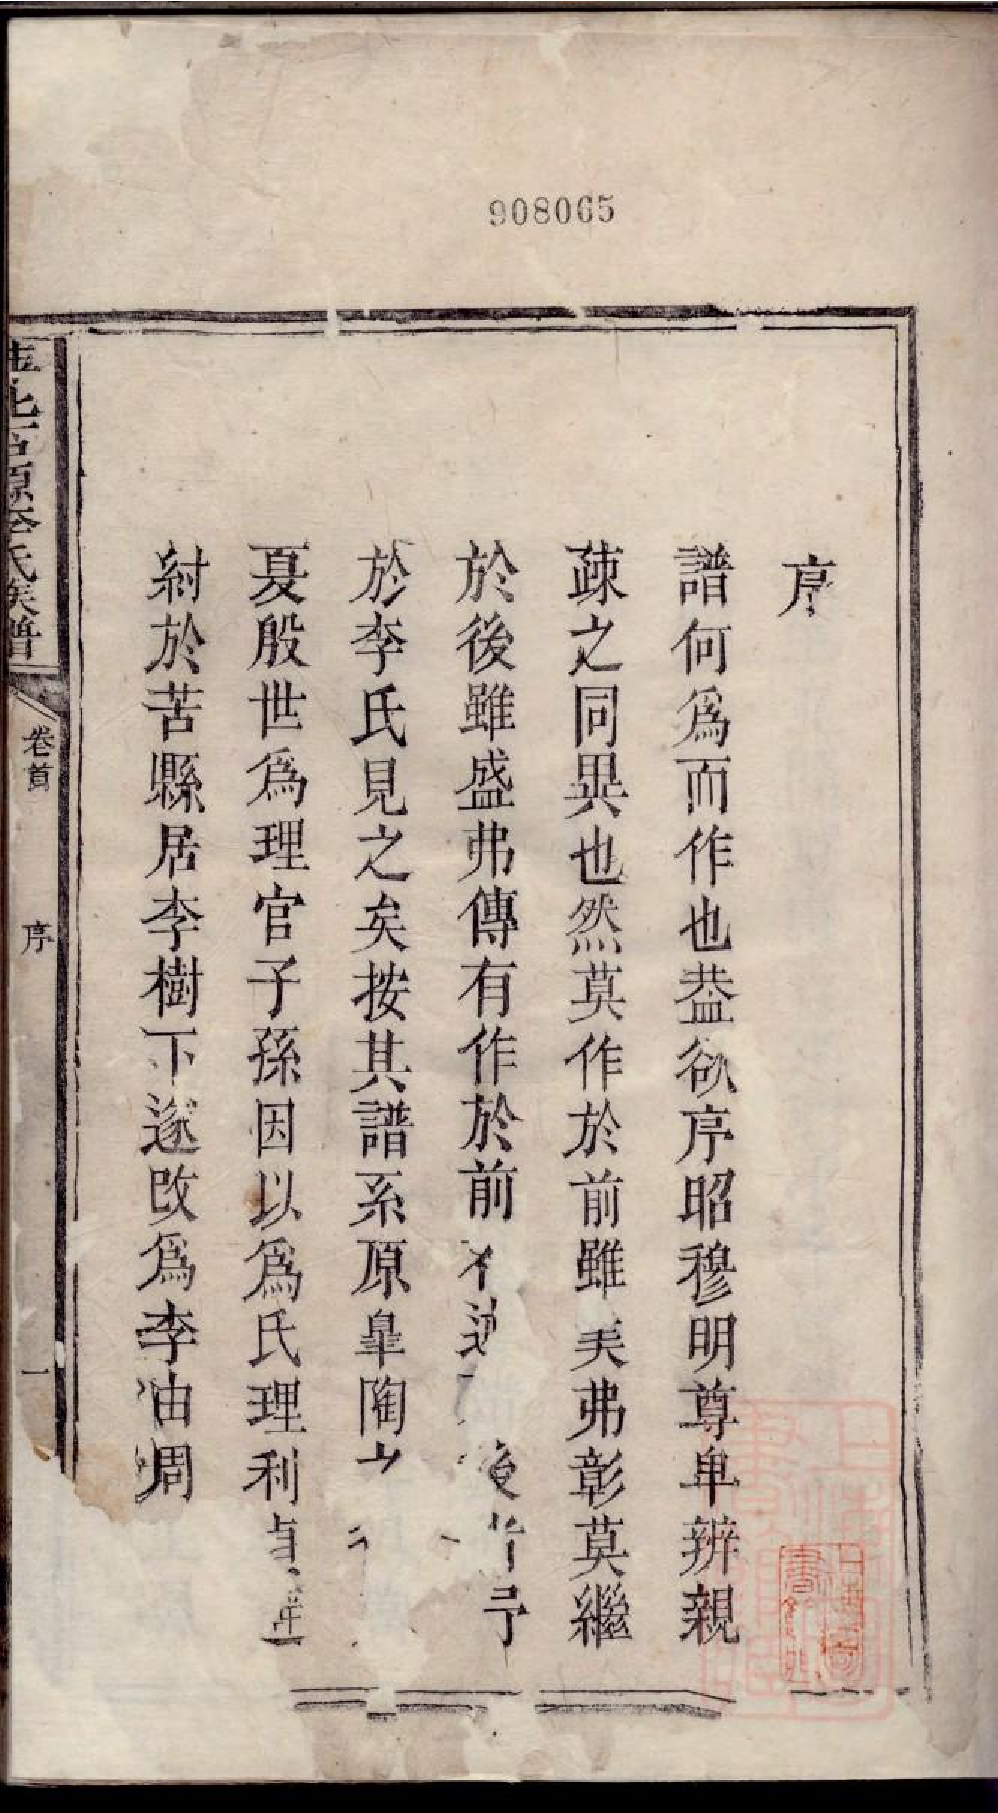 908065
序
譜何爲而作也葢欲序昭穆明尊卑辨親
疎之同異也然莫作於前雖美弗彰莫繼
於後雖盛弗傳有作於前後予
於李氏見之矣按其譜系原臯陶之
夏殷世爲理官子孫因以爲氏理利貞避
紂於苦縣居李樹下遂改爲李由周
北石源李氏族譜
卷首
序
一